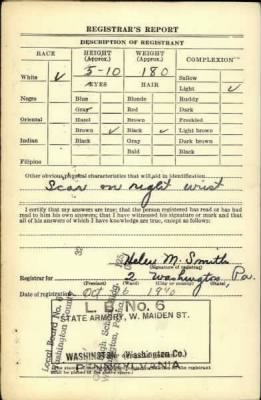 REGISTRAR'S REPORT
DESCRIPTION OF REGISTRANT
RACE HEIGHT (Approx.) WEIGHT (Approx.) COMPLEXION
White ✓ 5-10 180 Sallow
EYES HAIR Light ✓
Negro Blue Blonde Ruddy
Gray Red Dark
Oriental Hazel Brown Freckled
Brown ✓ Black ✓ Light brown
Indian Black Gray Dark brown
Bald Black
Filipino
Other obvious physical characteristics that will aid in identification
Scar on right wrist
I certify that my answers are true; that the person registered has read or has had
read to him his own answers; that I have witnessed his signature or mark and that
all of his answers of which I have knowledge are true, except as follows:
Helen M. Smith
(Signature of registrar)
Registrar for 2 Washington, Pa.
(Precinct) (Ward) (City or county) (State)
Date of registration Oct 1940
L. B. No. 6
STATE ARMORY, W. MAIDEN ST.
WASHINGTON (Washington Co.)
PENNSYLVANIA
Local Board No. 6
Washington County